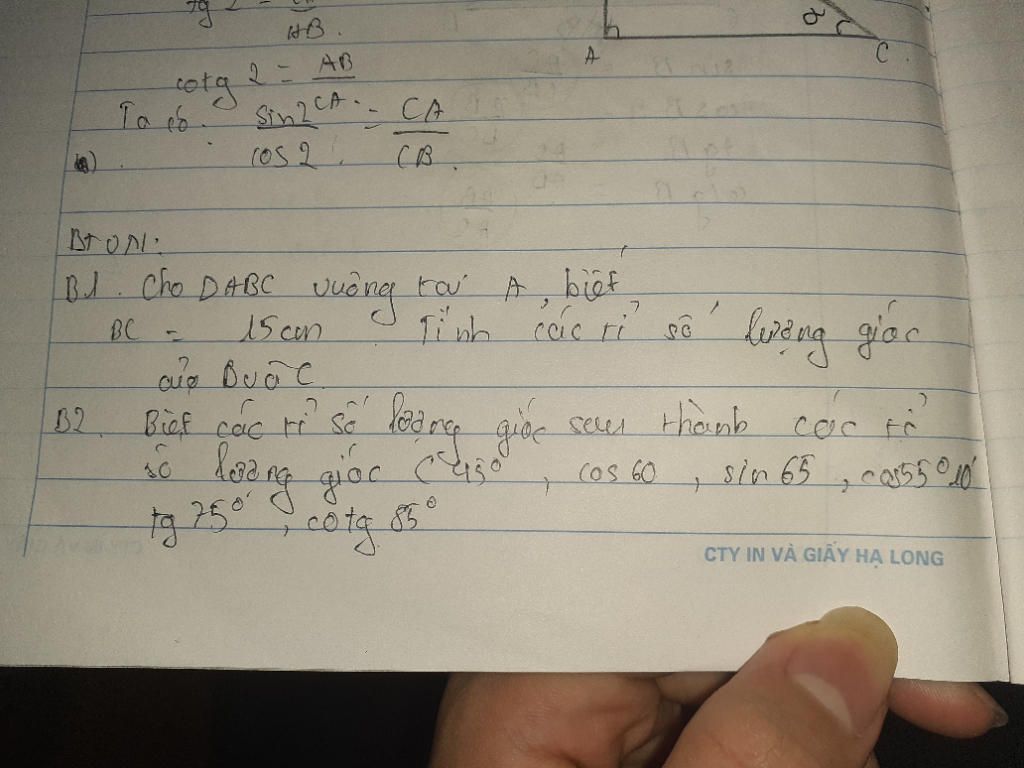 AB.
A
C
cotg 2 = AB
CA.
Ta có. sin2 = CA
cos 2. CB.
a)
BTON:
B1. Cho DABC vuông tại A, biết
BC = 15cm Tính các tỉ số lượng giác
của B và C.
B2. Biết các tỉ số lượng giác sau thành các tỉ
số lượng giác < 45°, cos 60, sin 65, cos55°10'
tg 75°, cotg 85°
CTY IN VÀ GIẤY HẠ LONG